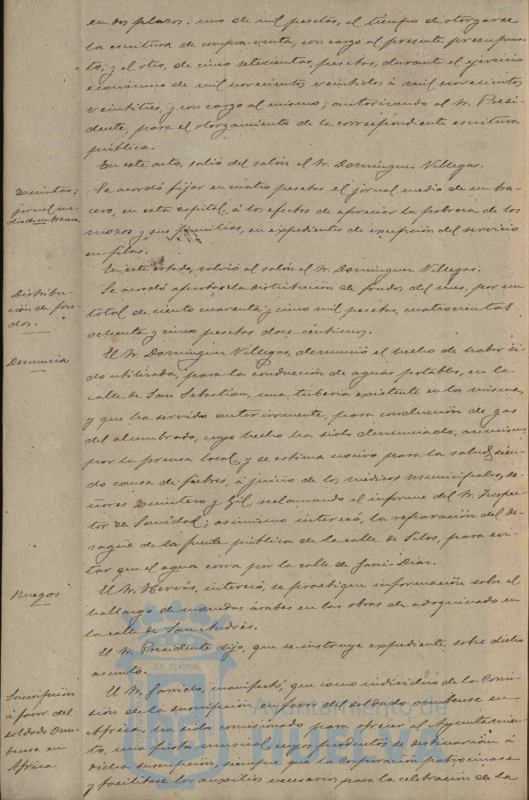 en dos plazos: uno de mil pesetas, al tiempo de otorgarse
la escritura de compra-venta, con cargo al presente presupues-
to; y el otro, de cinco setecientas, pesetas, durante el ejercicio
económico de mil novecientos veintidos á mil novecientos
veintitres, y con cargo al mismo; autorizando al Sr. Presi-
dente, para el otorgamiento de la correspondiente escritura
pública.
En este acto, salió del salón el Sr. Dominguez Villegas.
Quintas;
jornal me-
dio de un bracero.
Se acordó fijar en cuatro pesetas el jornal medio de un bra-
cero, en esta capital, á los efectos de apreciar la pobreza de los
mozos y sus familias, en expedientes de excepción del servicio
en filas.
En este estado, volvió al salón el Sr. Dominguez Villegas.
Distribu-
ción de fon-
dos.
Se acordó aprobar la distribución de fondos del mes, por un
total de ciento cuarenta y cinco mil pesetas, cuatrocientas
ochenta y cinco pesetas doce céntimos.
Denuncia
El Sr. Dominguez Villegas, denunció el hecho de haber si-
do utilizada, para la conducción de aguas potables, en la
calle de San Sebastian, una tubería existente en la misma,
y que ha servido anteriormente, para conducción de gas
del alumbrado, cuyo hecho ha sido denunciado, asimismo,
por la prensa local, y se estima nocivo para la salud, sien-
do causa de fiebres, á juicio de los médicos municipales, se-
ñores Quintero y Gil, reclamando el informe del Sr. Inspec-
tor de Sanidad; asimismo interesó, la reparación del de-
sagüe de la fuente pública de la calle de Silos, para evi-
tar que el agua corra por la calle de Jani-Diaz.
Ruegos
El Sr. Hervás, interesó, se practique información sobre el
hallazgo de monedas árabes en las obras de adoquinado en
la calle de San Andrés.
El Sr. Presidente dijo, que se instruye expediente, sobre dicho
asunto.
Suscripción
á favor del
soldado Onu-
bense en
Africa
El Sr. Garrido, manifestó, que como individuo de la Comi-
sión de la suscripción en favor del soldado onubense en
Africa, ha sido comisionado para ofrecer al Ayuntamien-
to, una fiesta musical, cuyos productos se destinarían á
dicha suscripción, siempre que la Corporación patrocinase
y facilitase los auxilios necesarios para la celebración de la
ST TERRAE
Ayuntamiento de
HUELVA